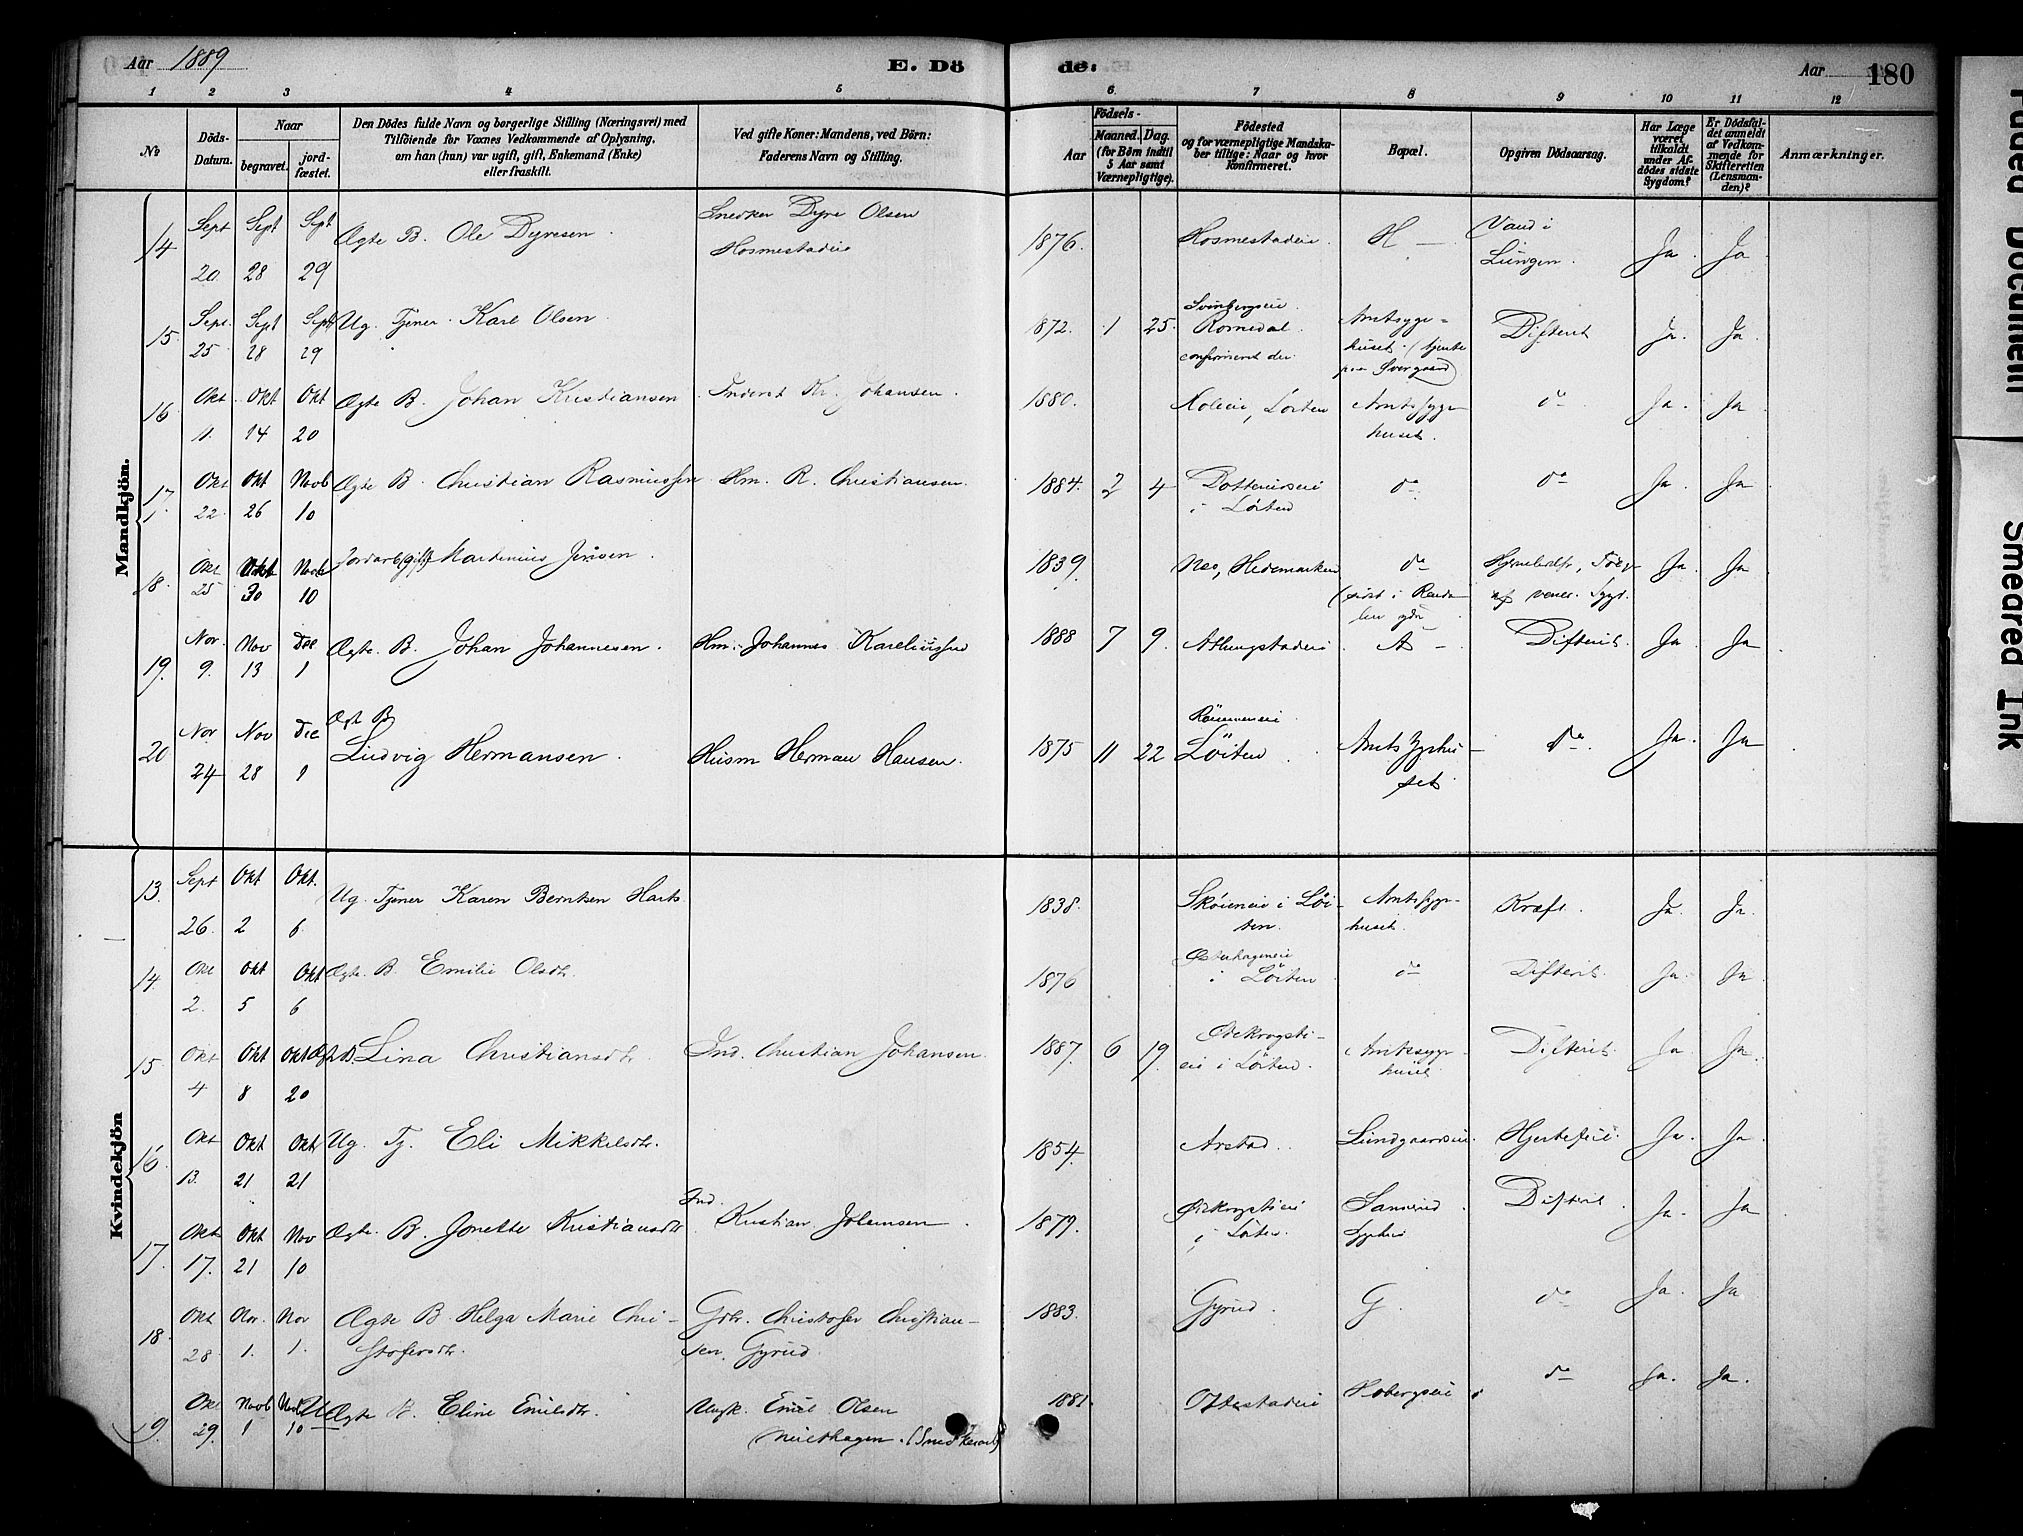 Aar 1889 E. Dö de: Aar 180
1 2 3 4 5 6. 7 8 9 10 11 12
№
Döds-Datum.
Naar
begravet.
jord-fæstet.
Den Dödes fulde Navn og borgerlige Stilling (Næringsvei) med
Tilföiende for Voxnes Vedkommende af Oplysning,
om han (hun) var ugift, gift, Enkemand (Enke)
eller fraskilt.
Ved gifte Koner: Mandens, ved Börn:
Faderens Navn og Stilling.
Födsels-
Aar
Maaned. Dag.
(for Börn indtil
5 Aar samt
Værnepligtige).
Födested
og for værnepligtige Mandska-
ber tillige: Naar og hvor
Konfirmeret.
Bopæl.
Opgiven Dödsaarsag.
Har Læge
været
tilkaldt
under Af-
dödes sidste
Sygdom?
Er Dödsfal-
det anmeldt
af Vedkom-
mende for
Skifteretten
(Lensman-
den)?
Anmærkninger.
Mandkjön.
14 Sept 20 Sept 28 Sept 29 Ægte B. Ole Dyresen. Snedker Dyre Olsen
Hosmestadeie 1876. Hosmestadeie. H — Vand i
Lungen. Ja. Ja.
15 Sept. 25 Sept 28 Sept 29 Ug. Tjener. Karl Olsen. 1872. 1 25.
Romedal.
confirmeret der. Amtsyge-
huset. (tjente
paa Overgaard) Difterit Ja. Ja.
16 Okt. 11. Okt 14 Okt 20 Ægte B. Johan Kristiansen. Inderst Kr. Johansen. 1880. Koleie, Löiten Amtssyge
huset. do Ja. Ja
17 Okt 22 Okt 26 Novb 10 Ægte B. Christian Rasmussen Hm. R. Christiansen. 1884. 2 4
i Löiten do do Ja. Ja
18. Okt 25 Okt 30 Novb 10 Jordarb (gift) Martinius Jensen. 1839. Nes, Hedemarken do Ja. Ja.
19. Nov. 9. Nov 13 Dec 1 Ægte. B. Johan Johannesen. Hm. Johannes Kareliussen 1888 7 9. Atlungstadeie. A — Difterit. Ja. Ja
20 Nov 24 Nov 28 Dec 1 Ægt B
Ludvig Hermansen. Husm Herman Hansen. 1875 11 22
Löiten. Amtssyghu-
set do. Ja. Ja
Kvindekjön
13. Sept 26. Okt 2 Okt. 6 Ug. Tjener Karen Berntsen 1838. Skøieneie i Löi-
ten. Amtssyge-
huset. Kræft. Ja. Ja.
14. Okt 2. Okt 5 Okt 6 Ægte. B. Emilie Olsdtr. 1876 Østerhageneie
i Löiten do Difterit. Ja. Ja
15 Okt 4 Okt 8 Okt 20 Ægt B. Lina Christiansdtr. Ind. Christian Johansen. 1887. 6 19. Ødekrogsti-
eie i Löiten. Amtssyge-
huset Difterit. Ja Ja.
16. Okt 13. Okt 21 Okt 21 Ug. Tj. Eli Mikkelsdtr. 1854. Arstad. Lundgaardseie. Hjertefeil. Ja. Ja.
17. Okt 17. Okt 21 Nov 10 Ægte. B. Jonette Kristiansdtr Ind.
Kristian Johansen. 1879. Ødekrogstieie
i Löiten. Sanerud
Syghus Difterit. Ja. Ja
18. Okt 28 Nov. 1. Nov 1. Ægte B. Helga Marie Chri-
stofersdtr. Gbr. Christofer Christian-
sen, Gyrud 1883. Gyrud. G. do Ja. Ja
19. Okt 29. Novb 1 Novb 10 UÆgte B. Eline Emilsdtr. Ungk. Emil Olsen
1881. Ottestadeie Hobergseie do Ja. Ja.
Faded Document
Smeared Ink